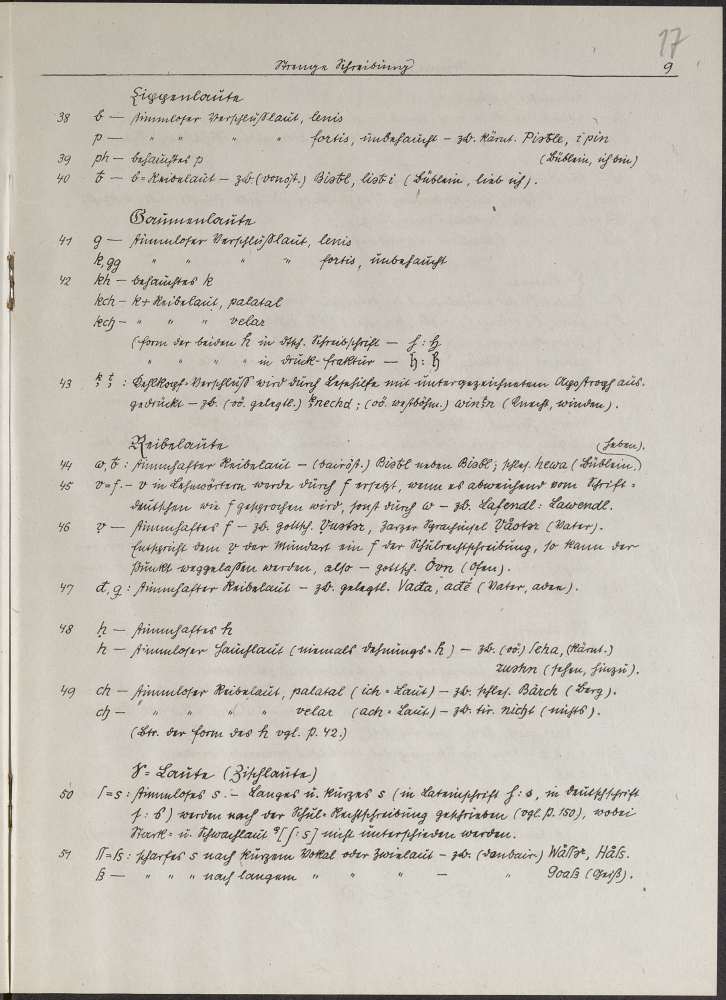 17
Strenge Schreibung 9
Lippenlaute
38 b — stimmloser Verschlußlaut, lenis
p — " " " " fortis, unbehaucht – zb. kärnt. Pisble, i pin
39 ph — behauchtes p (Büblein, ich bin)
40 ƀ — b=Reibelaut – zb (donöst.) Biəƀl, liəƀ i (Büblein, lieb ich).
Gaumenlaute
41 g — stimmloser Verschlußlaut, lenis
k, gg " " " " fortis, unbehaucht
42 kh — behauchtes k
kch – k + Reibelaut, palatal
kcħ – " " " velar
(form der beiden h in dtsch. Schreibschrift —
" " " " " in druck-fraktur —
43 : Kehlkopf-Verschluß wird durch Lesehilfe mit untergezeichnetem Apostroph aus-
gedrückt – zb. (oö. gelegtl.) knechd; (oö. westböhm.) (Knecht, winden).
Reibelaute (heben).
44 ω, ƀ : stimmhafter Reibelaut — (bairöst.) Biəƀl neben Biəbl; schles. hewa (Büblein,
45 v=f. – v in Lehnwörtern werde durch f ersetzt, wenn es abweichend vom Schrift-
deutschen wie f gesprochen wird, sonst durch w – zb. Lafendl : Lawendl.
46 ṿ — stimmhaftes f – zb. gottsch. Ṿuətər, zarzer Sprachinsel Ṿåotər (Vater).
Entspricht dem ṿ der Mundart ein f der Schulrechtschreibung, so kann der
Punkt weggelassen werden, also – gottsch. Ovn (Ofen).
47 đ, g : stimmhafter Reibelaut – zb. gelegtl. Vađa, ađé (Vater, adee).
48 — stimmhaftes h
h — stimmloser Hauchlaut (niemals dehnungs-h) – zb. (oö) seha, (kärnt.)
zuəhn (sehen, hinzu).
49 ch — stimmloser Reibelaut, palatal (ich-Laut) – zb. schles. Bärch (Berg).
cħ — " " " " velar (ach-Laut) – zb. tir. nicħt (nichts).
(Btr. der form des h vgl. P. 42.)
S-Laute (Zischlaute)
50 ſ=s : stimmloses s. – Langes u. kurzes s (in Lateinschrift ſ : s, in Deutschschrift
ſ : s) werden nach der Schul-Rechtschreibung geschrieben (vgl. P. 150), wobei
Stark- u. Schwachlaut [ſ : s] nicht unterschieden werden.
51 ſſ=ſs : scharfes s nach kurzem Vokal oder Zwielaut – zb. (donbair.) Wåſſər, Håſs.
ß — " " " nach langem " " " — " Goaß (Geiß).